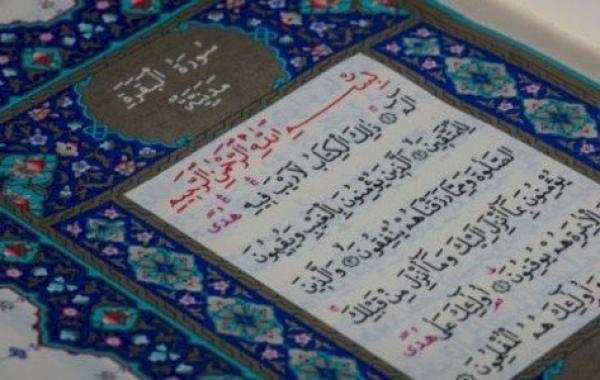 سُورَةُ الْبَقَرَةِ
مَدَنِيَّةٌ
بِسْمِ اللّٰهِ الرَّحْمٰنِ الرَّحِيمِ
الٓمٓ ۝ ذٰلِكَ الْكِتَابُ لَا رَيْبَ فِيهِ هُدًى
لِلْمُتَّقِينَ ۝ الَّذِينَ يُؤْمِنُونَ بِالْغَيْبِ وَيُقِيمُونَ
الصَّلٰوةَ وَمِمَّا رَزَقْنَاهُمْ يُنْفِقُونَ ۝ وَالَّذِينَ
يُؤْمِنُونَ بِمَا أُنْزِلَ إِلَيْكَ وَمَا أُنْزِلَ مِنْ قَبْلِكَ
الْاٰخِرَةِ هُمْ يُوقِنُونَ ۝ أُولٰئِكَ عَلٰى هُدًى
وَأُولٰئِكَ هُمُ الْمُفْلِحُونَ ۝